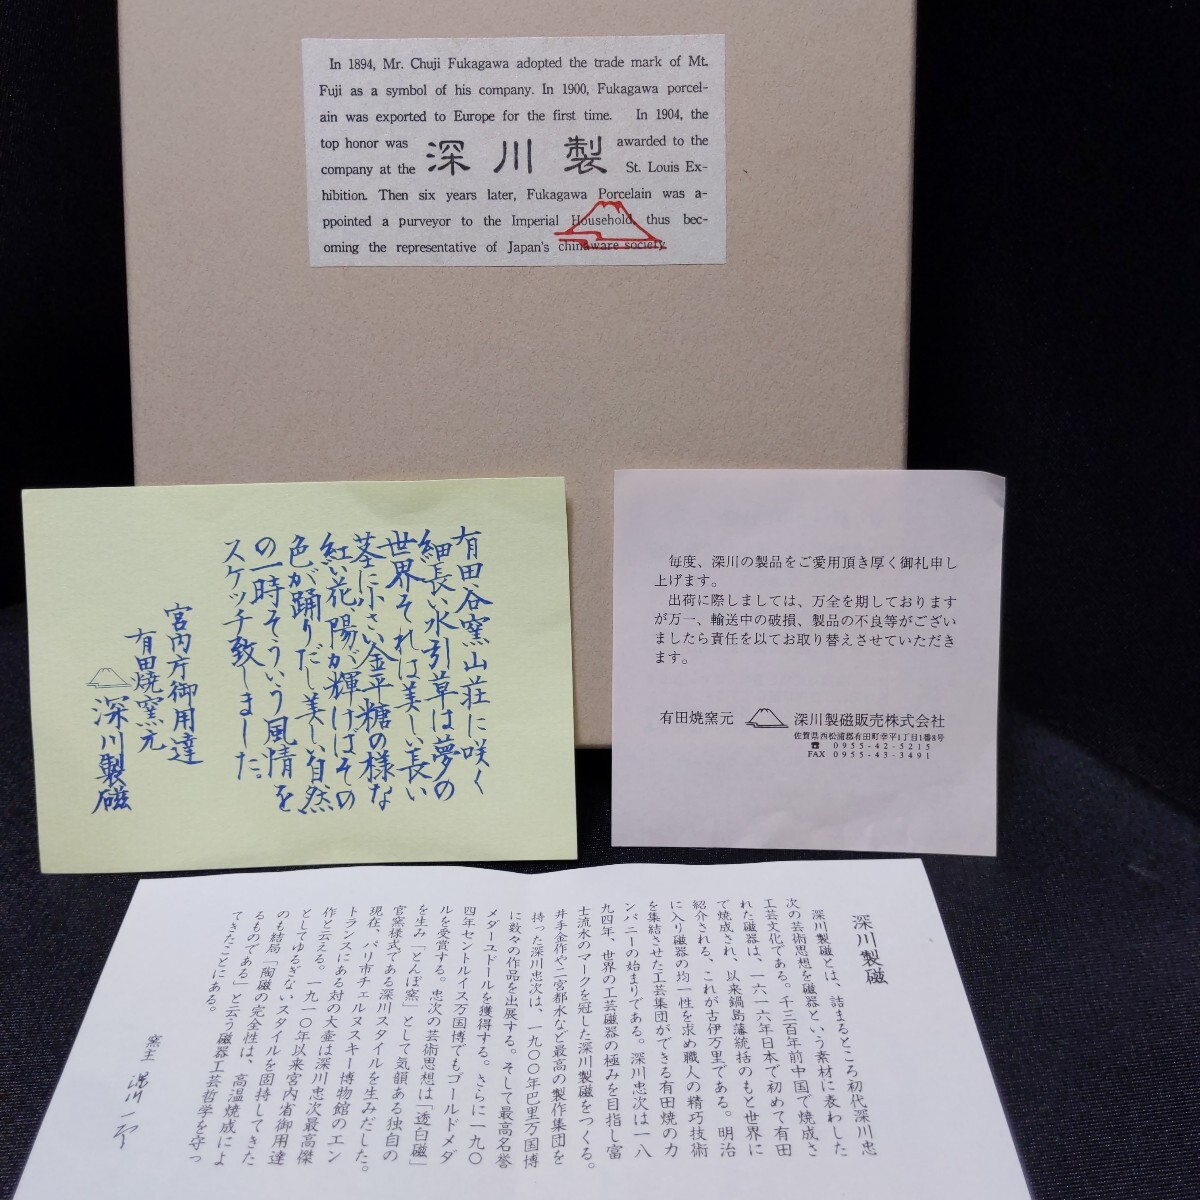 In 1894, Mr. Chuji Fukagawa adopted the trade mark of Mt.
Fuji as a symbol of his company. In 1900, Fukagawa porcel-
ain was exported to Europe for the first time. In 1904, the
top honor was awarded to the
company at the St. Louis Ex-
深川製
hibition. Then six years later, Fukagawa Porcelain was a-
ppointed a purveyor to the Imperial Household, thus bec-
oming the representative of Japan's chinaware society.
有田谷窯山荘に咲く
細長い水引草は夢の
世界それは美しい長い
茎に小さい金平糖の様な
紅い花、陽が輝けばその
色が踊りだし美しい自然
の一時そういう風情を
スケッチ致しました。
宮内庁御用達
有田焼窯元
深川製磁
毎度、深川の製品をご愛用頂き厚く御礼申し
上げます。
出荷に際しましては、万全を期しております
が万一、輸送中の破損、製品の不良等がござい
ましたら責任を以てお取り替えさせていただき
ます。
有田焼窯元 深川製磁販売株式会社
佐賀県西松浦郡有田町幸平1丁目1番8号
☎ 0955-42-5215
FAX 0955-43-3491
深川製磁
深川製磁とは、詰まるところ初代深川忠
次の芸術思想を磁器という素材に表わした
工芸文化である。千三百年前中国で焼成さ
れた磁器は、一六一六年日本で初めて有田
で焼成され、以来鍋島藩統括のもと世界に
紹介される、これが古伊万里である。明治
に入り磁器の均一性を求め職人の精巧技術
を集結させた工芸集団ができる有田焼のカ
ンパニーの始まりである。深川忠次は一八
九四年、世界の工芸磁器の極みを目指し富
士流水のマークを冠した深川製磁をつくる。
井手金作や二宮都水など最高の製作集団を
持った深川忠次は、一九〇〇年巴里万国博
に数々の作品を出展する。そして最高名誉
メダーユドールを獲得する。さらに一九〇
四年セントルイス万国博でもゴールドメダ
ルを受賞する。忠次の芸術思想は「透白磁」
を生み「とんぼ窯」として気韻ある独自の
官窯様式である深川スタイルを生みだした。
現在、パリ市チェルヌスキー博物館のエン
トランスにある対の大壷は深川忠次最高傑
作と云える。一九一〇年以来宮内省御用達
としてゆるぎないスタイルを固持してきた
のも結局「陶磁の完全性は、高温焼成によ
るものである」と云う磁器工芸哲学を守っ
てきたことにある。
窯主